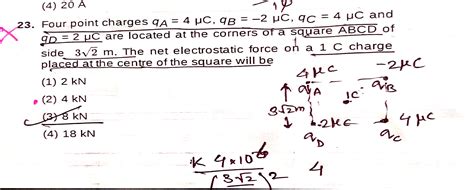 (4) 20 A
23. Four point charges qA = 4 μC, qB = –2 μC, qC = 4 μC and
qD = 2 μC are located at the corners of a square ABCD of
side 3√2 m. The net electrostatic force on a 1 C charge
placed at the centre of the square will be
(1) 2 kN
(2) 4 kN
(3) 8 kN
(4) 18 kN
4μC
-2μC
qA
qB
1C
3√2m
-2μC
4μC
qD
qC
K 4×10
(3√2)2
4